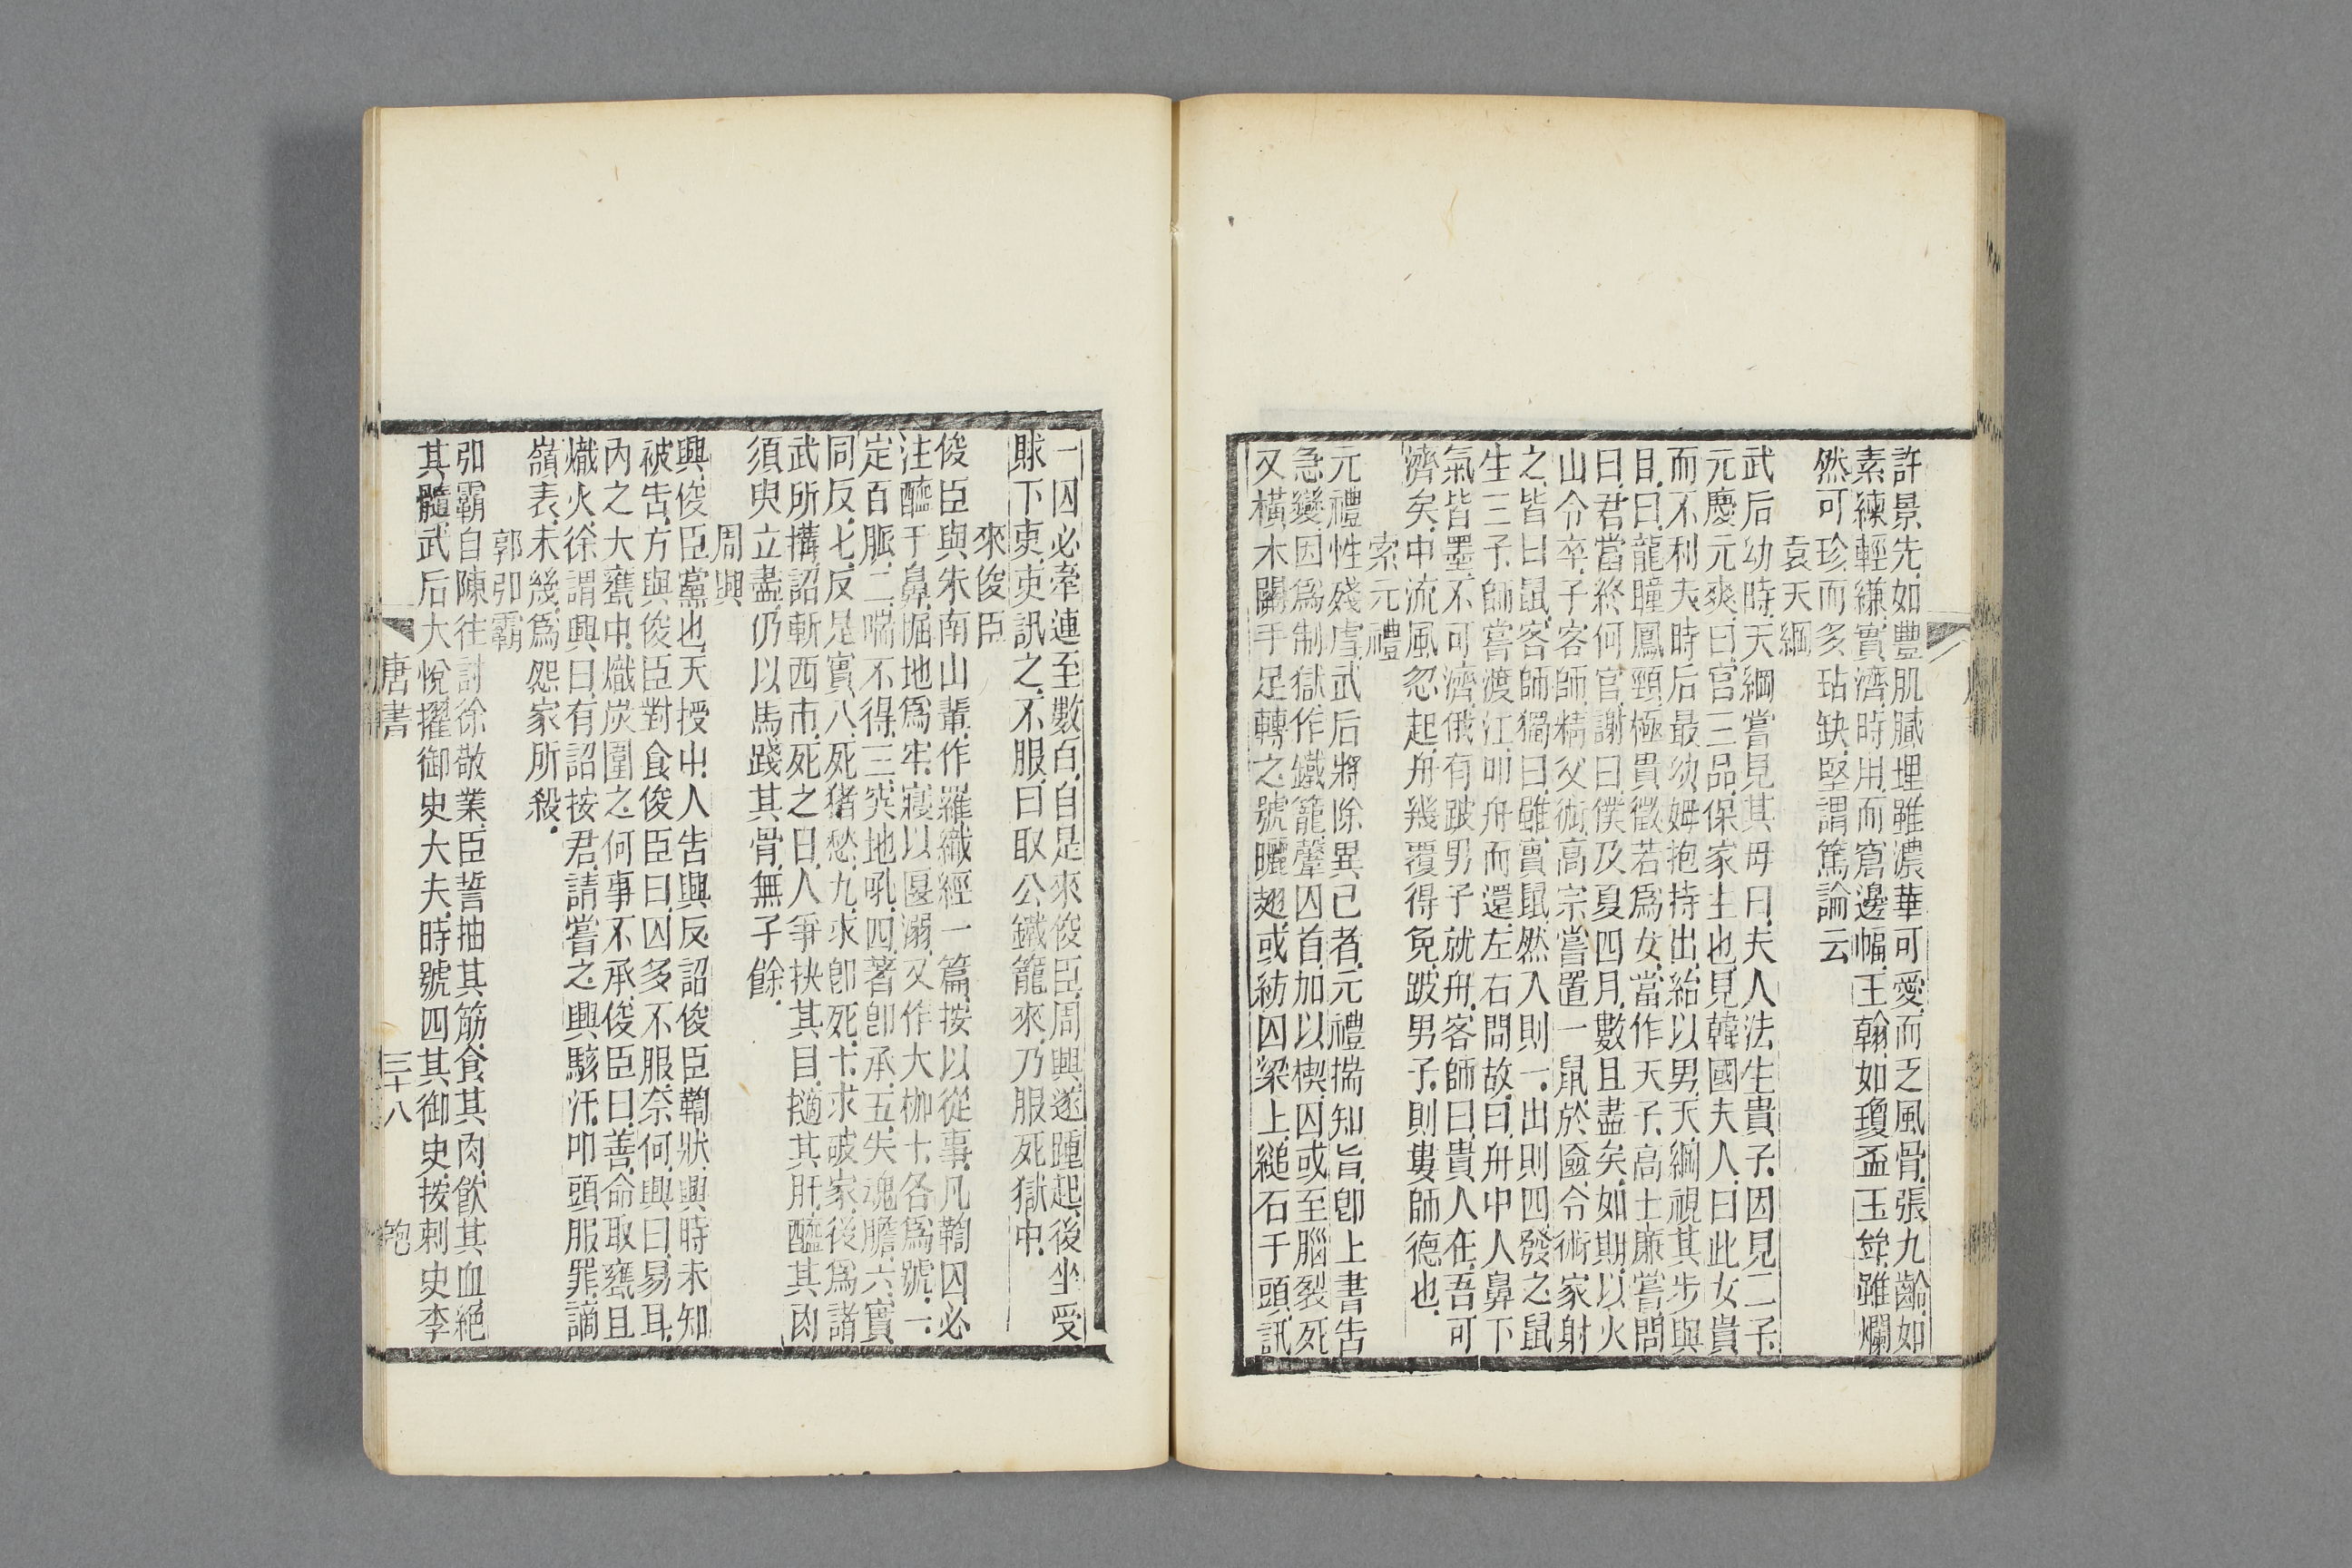 許景先、如豐肌膩理、雖濃華可愛、而乏風骨、張九齡、如
素練輕縑、實濟時用、而窘邊幅、王翰、如瓊盃玉斝、雖爛
然可珍、而多玷缺、堅謂篤論云
袁天綱
武后幼時、天綱嘗見其母曰、夫人法生貴子、因見二子、
元慶元爽、曰、官三品、保家主也、見韓國夫人、曰此女貴
而不利夫、時后最幼、姆抱持出、紿以男、天綱視其步與
目、曰、龍瞳鳳頸、極貴徵、若爲女、當作天子、高士廉嘗問
曰、君當終何官、謝曰、僕及夏四月、數且盡矣、如期、以火
山令卒、子客師、精父術、高宗嘗置一鼠於匳、令術家射
之、皆曰鼠、客師獨曰、雖實鼠、然入則一、出則四、發之、鼠
生三子、師嘗渡江、叩舟而還、左右問故、曰、舟中人鼻下
氣皆墨、不可濟、俄有跛男子就舟、客師曰、貴人在、吾可
濟矣、中流風忽起、舟幾覆得免、跛男子、則婁師德也、
索元禮
元禮性殘虐、武后將除異己者、元禮揣知旨、卽上書告
急變、因爲制獄、作鐵籠、䥯囚首、加以楔、囚或至腦裂死
又橫木關手足轉之、號曬翅、或紡囚梁上、縋石于頭、訊
一囚必牽連至數百、自是來俊臣、周興遂踵起、後坐受
賕下吏、吏訊之、不服、曰取公鐵籠來、乃服死獄中、
來俊臣
俊臣與朱南山輩、作羅織經一篇、按以從事、凡鞫囚、必
注醯于鼻、掘地爲牢、寢以匽溺、又作大枷十、各爲號、一、
定百脈、二、喘不得、三、突地吼、四、著卽承、五、失魂膽、六、實
同反、七、反是實、八、死猪愁、九、求卽死、十、求破家、後爲諸
武所搆、詔斬西市、死之日、人爭抉其目、擿其肝、醢其肉
須臾立盡、仍以馬踐其骨、無子餘、
周興
興、俊臣黨也、天授中、人告興反、詔俊臣鞫狀、興時未知
被告、方與俊臣對食、俊臣曰、囚多不服、奈何、興曰、易耳、
內之大甕中、熾炭圍之、何事不承、俊臣曰、善、命取甕且
熾火、徐謂興曰、有詔按君、請嘗之、興駭汗、叩頭服罪、謫
嶺表、未幾、爲怨家所殺、
郭弘霸
弘霸自陳往討徐敬業、臣誓抽其筋、食其肉、飲其血、絕
其髓、武后大悅、擢御史大夫、時號四其御史、按刺史李
唐書 三十八 匏